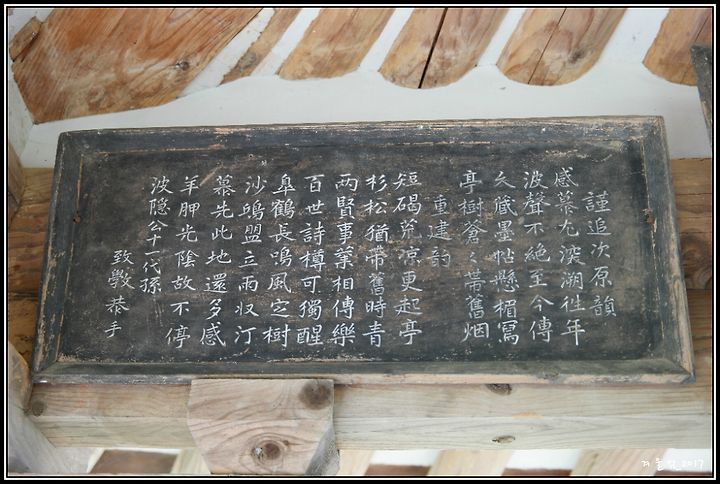 謹追次原韻
感慕尤深溯往年
波聲不絶至今傳
久蔵墨帖懸楣寫
亭樹蒼々帶舊烟
重建韵
短碣荒凉更起亭
杉松猶帶舊時青
两賢事業相傳樂
百世詩樽可獨醒
皐鶴長鳴風定樹
沙鷗盟立雨収汀
慕先此地還多感
羊胛光陰故不停
波隐公十一代孫
致斅恭手
2017